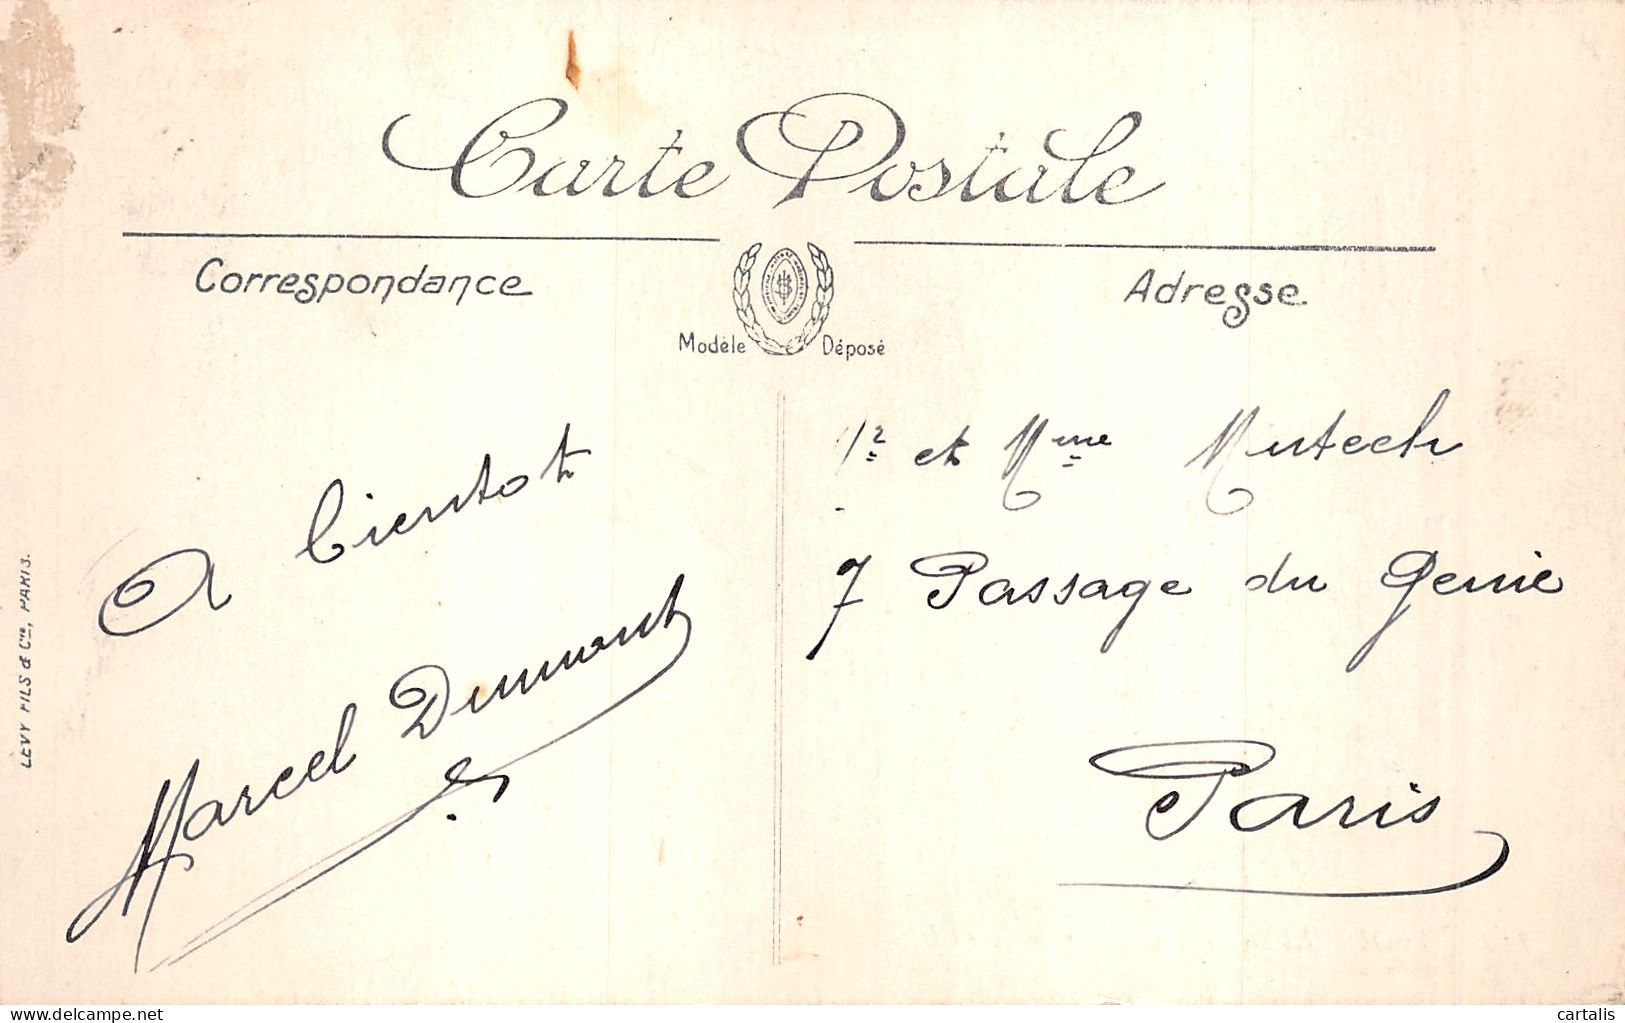 Carte Postale
Correspondance
Adresse
Modèle Déposé
A bientot
Marcel Dumont
et Mme Mutech
7 Passage du Genie
Paris
LEVY FILS & Cie, PARIS.
delcampe.net
cartalis